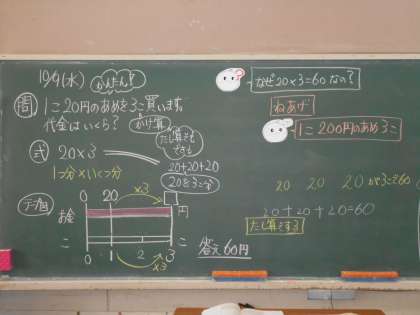 10/9(水)
かんたん?
問 1こ20円のあめを3こ買います。
代金はいくら?
かけ算
たし算でもできる
式 20×3
1つ分×いくつ分
20+20+20
20を3こ分
テープ図
0 20 ×3
お金 円
こ こ
0 1 2 3
×3
答え 60円
なぜ20×3=60なの?
ねあげ
1こ200円のあめ3こ
20 20 20が3こ=60
20+20+20=60
たし算をする